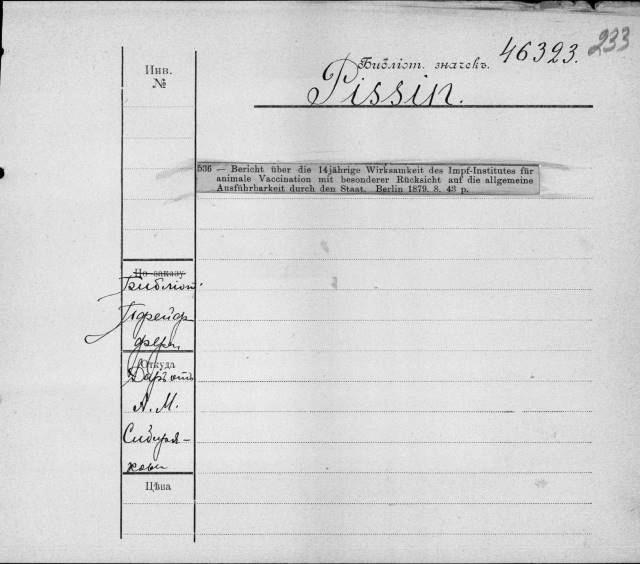 233
Библіот. значекъ. 46323.
Инв.
№
Pissin.
536 — Bericht über die 14jährige Wirksamkeit des Impf-Institutes für
animale Vaccination mit besonderer Rücksicht auf die allgemeine
Ausführbarkeit durch den Staat. Berlin 1879. 8. 43 p.
По заказу
Библіот.
Пфейф
фера,
Откуда
Даръ отъ
А. М.
Сибиря-
кова
Цѣна